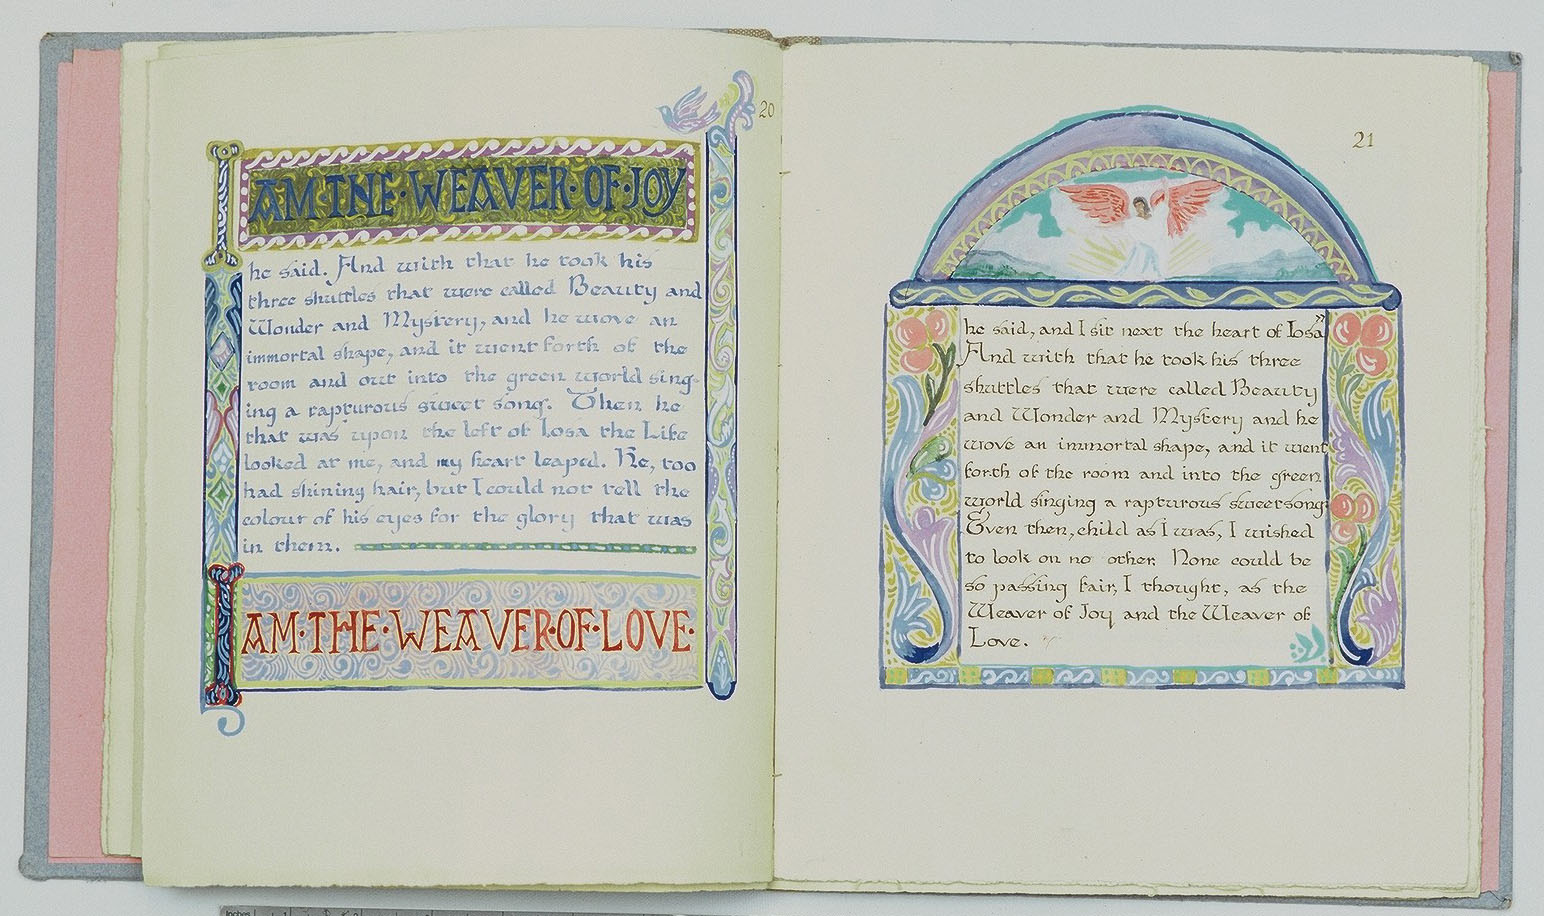 20
I AM·THE·WEAVER·OF·JOY
he said. And with that he took his
three shuttles that were called Beauty and
Wonder and Mystery, and he wove an
immortal shape, and it went forth of the
room and out into the green world sing-
ing a rapturous sweet song. Then he
that was upon the left of Iosa the Life
looked at me, and my heart leaped. He, too
had shining hair, but I could not tell the
colour of his eyes for the glory that was
in them.
I AM·THE·WEAVER·OF·LOVE·
21
he said, and I sit next the heart of Iosa"
And with that he took his three
shuttles that were called Beauty
and Wonder and Mystery and he
wove an immortal shape, and it went
forth of the room and into the green
world singing a rapturous sweet song.
Even then, child as I was, I wished
to look on no other. None could be
so passing fair, I thought, as the
Weaver of Joy and the Weaver of
Love.
Inches 1 2